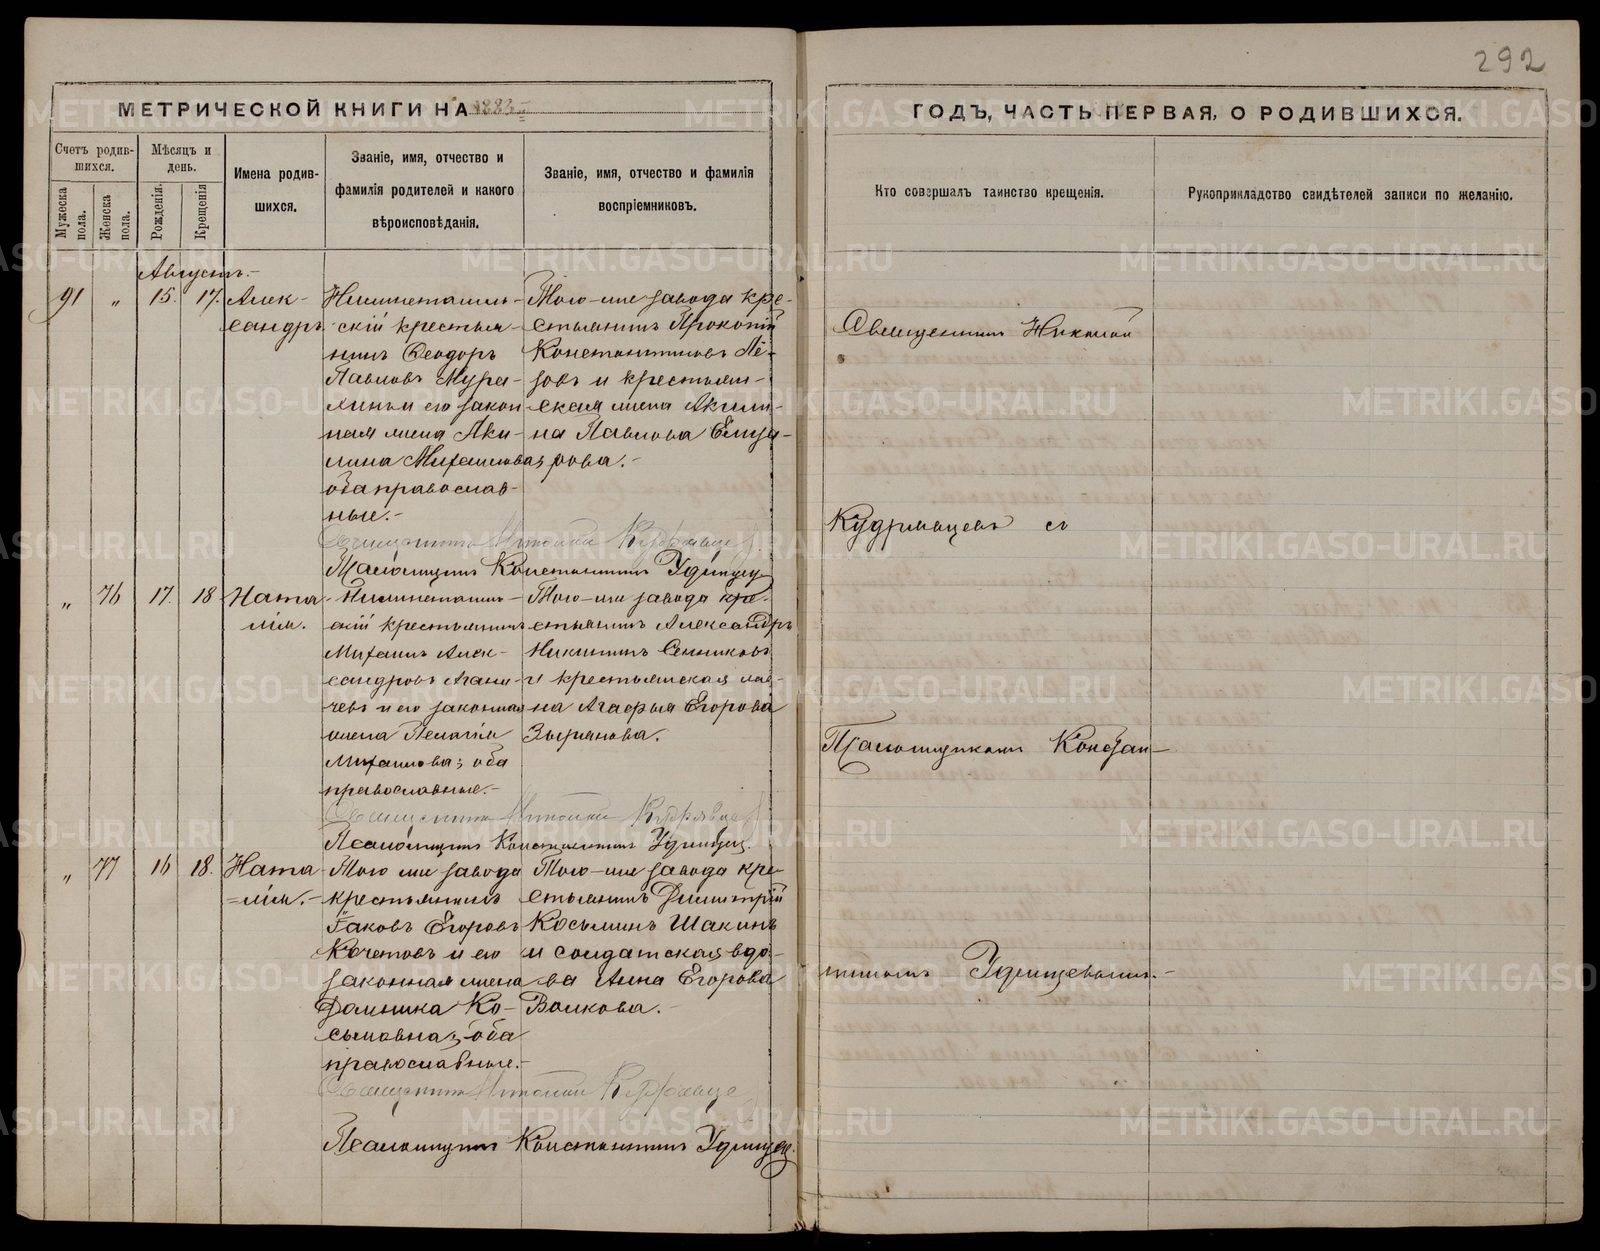 292
МЕТРИЧЕСКОЙ КНИГИ НА 1883
ГОДЪ, ЧАСТЬ ПЕРВАЯ, О РОДИВШИХСЯ.
Счетъ родив-
шихся.
Мужеска
пола.
Женска
пола.
Мѣсяцъ и
день.
Рожденія.
Крещенія
Имена родив-
шихся.
Званіе, имя, отчество и
фамилія родителей и какого
вѣроисповѣданія.
Званіе, имя, отчество и фамилія
воспріемниковъ.
Кто совершалъ таинство крещенія.
Рукоприкладство свидѣтелей записи по желанію.
Августъ.-
91 " 15. 17. Алек-
сандръ
Нижнетагиль-
скій крестья-
нинъ Ѳеодоръ
Павловъ Мура-
и его закон
ная жена Аки-
лина Михаилова;
оба православ-
ные.-
Того-же завода кре-
стьянинъ Прокопій
Константиновъ Ле-
зовъ и крестьян-
ская жена Акили-
на Павлова Елиза-
рова.-
Священникъ Николай Кудрявцев
Псаломщикъ Константинъ Удинцев
" 76 17. 18 Ната
лія.
Нижнетагиль-
скій крестьянинъ
Михаилъ Алек-
сандровъ
и его законная
жена Пелагія
Михаилова; оба
православные.-
Того-же завода кре-
стьянинъ Александръ
Никитинъ Сенниковъ
и крестьянская
на Агафья Егорова
Зырянова.
Священникъ Николай Кудрявцев
Псаломщикъ Константинъ Удинцев
" 77 16 18. Ната
=лія.-
Того же завода
крестьянинъ
Іаковъ Егоровъ
Кочетовъ и его
законная жена
Домника Ко-
сьмовна; оба
православные.-
Того-же завода кре-
стьянинъ Димитрій
Косьминъ Шакинъ
и солдатская вдо-
ва Анна Егорова
Волкова.-
Священникъ Николай Кудрявцев
Псаломщикъ Константинъ Удинцев
Священникъ Николай
Кудрявцевъ съ
Псаломщикомъ Констан-
тиномъ Удинцевымъ.-
METRIKI.GASO-URAL.RU